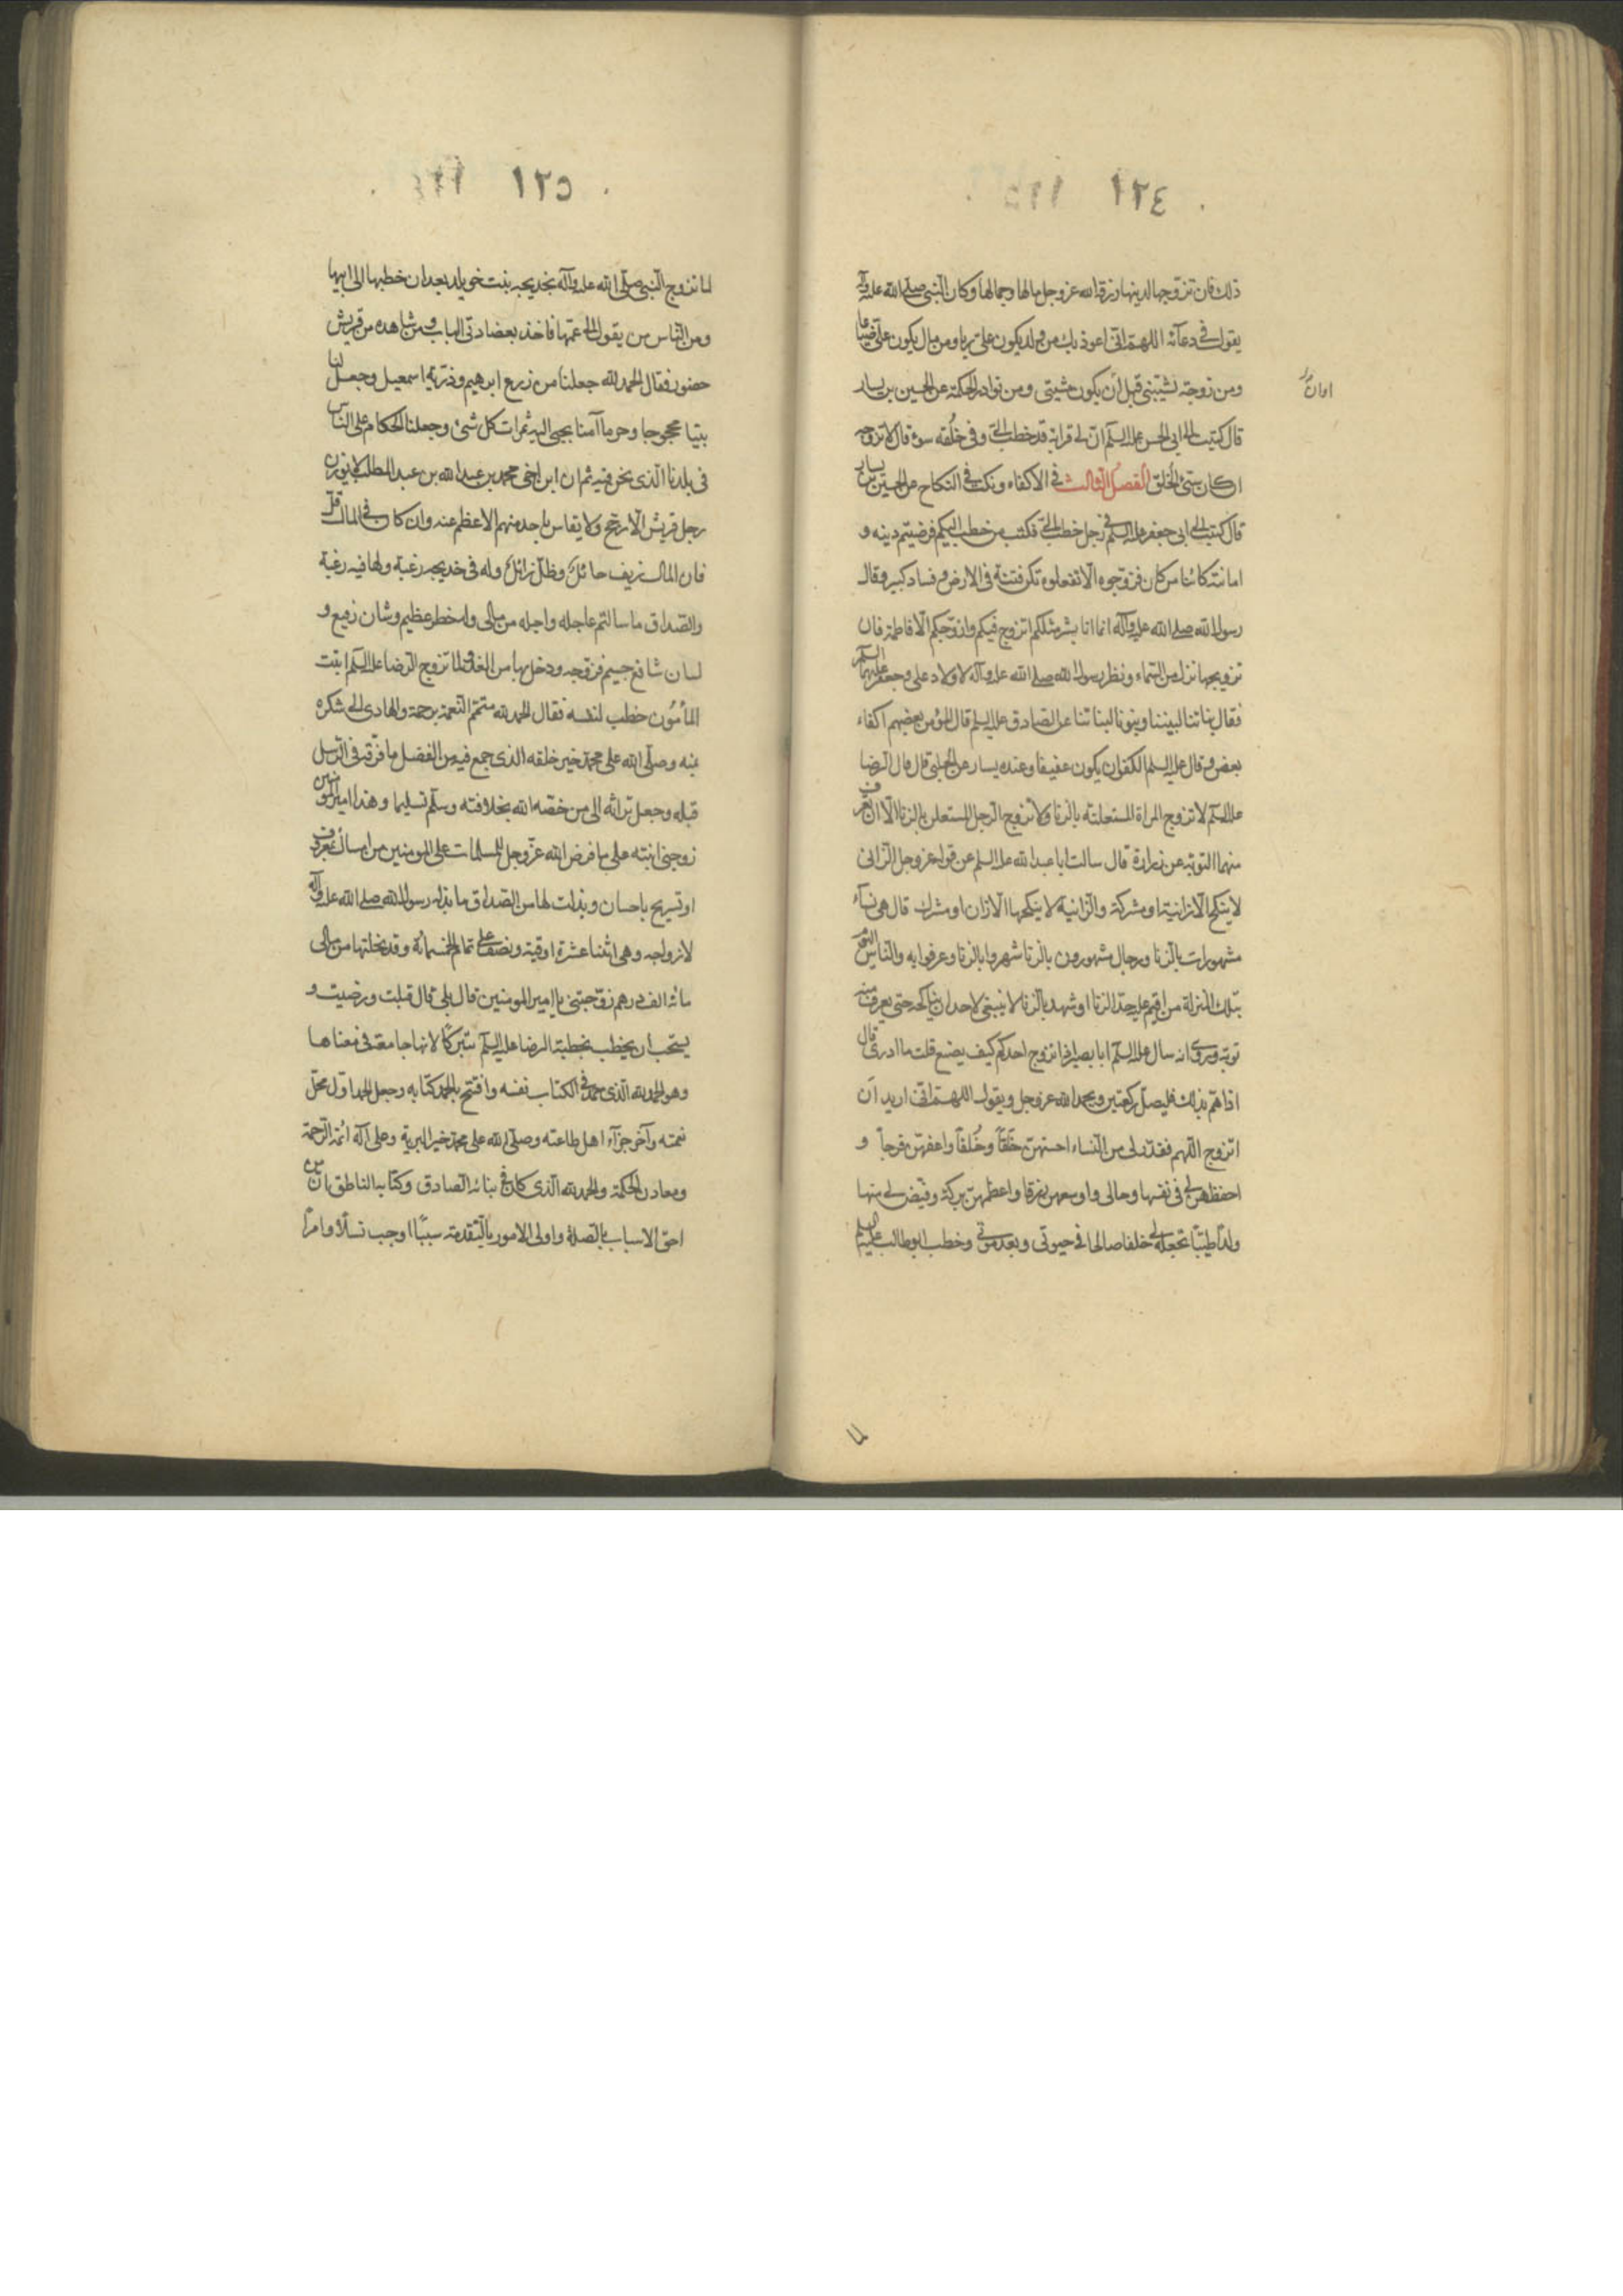 ١٢٤
ذلك فان تزوجها لدينها رزقه الله عز وجل مالها وجمالها وكان النبي صلى الله عليه وآله
يقول في دعآئه اللهم انى اعوذ بك من ولد يكون على ربا ومن مال يكون على ضياعا
ومن زوجة تشيبنى قبل أن يكون مشيبى ومن نوادر الحكمة عن الحسين بن بسار
اوان
قال كتبت الى ابى الحسن عليه السلم ان لى قرابة قد خطب الىّ وفى خلُقه سوء قال لا تزوجه
ان كان سىّئ الخلق الفصل الثالث فى الاكفاء ونكت فى النكاح عن الحسين بن بسار
قال كتبت الى ابى جعفر عليه السلم فى رجل خطب الىّ فكتب من خطب اليكم فرضيتم دينه و
امانته كائنا من كان فزوجوه الا تفعلوه تكن فتنة فى الارض وفساد كبير وقال
رسول الله صلى الله عليه وآله انما انا بشر مثلكم اتزوج فيكم وازوجكم الا فاطمة فان
تزويجها نزل من السماء ونظر رسول الله صلى الله عليه وآله لاولاد على وجعفر عليهما السلم
فقال بناتنا لبنينا وبنونا لبناتنا عن الصادق عليه السلم قال المؤمن بعضهم اكفاء
بعض وقال عليه السلم الكفو ان يكون عفيفا وعنده يسار عن الحلبى قال قال الرضا
عليه السلم لا تزوج المراة المستعلنة بالزنا ولا تزوج الرجل المستعلن بالزنا الا ان تعرف
منهما التوبة عن زرارة قال سالت ابا عبد الله عليه السلم عن قول عز وجل الزانى
لا ينكح الا زانية او مشركة والزانية لا ينكحها الا زان او مشرك قال هى نسآء
مشهورات بالزنا ورجال مشهورون بالزنا شهروا بالزنا وعرفوا به والناس اليوم
بتلك المنزلة من اقيم عليه حد الزنا او شهد بالزنا لا ينبغى لاحد ان يناكحه حتى يعرف منه
توبة وروى انه سال عليه السلم ابا بصير اذا تزوج احدكم كيف يصنع قلت ما ادرى قال
اذا هم بذلك فليصل ركعتين ويحمد الله عز وجل ويقول اللهم انى اريد ان
اتزوج اللهم فقدر لى من النساء احسنهن خَلقاً وخُلقاً واعفهن فرجاً و
احفظهن لى فى نفسها ومالى واوسعهن رزقا واعظمهن بركة وقيّض لى منها
ولداً طيّبا تجعله لى خلفا صالحا فى حيوتى وبعد موتى وخطب ابو طالب عليه السلم
لما
١٢٥
لما تزوج النبى صلى الله عليه وآله بخديجه بنت خويلد بعد ان خطبها الى ابيها
ومن الناس من يقول الى عمها فاخذ بعضادتى الباب ومن شاهده من قريش
حضور فقال الحمد لله جعلنا من زرع ابرهيم وذرّية اسمعيل وجعل لنا
بيتا محجوجا وحرما آمنا يجبى اليه ثمرات كل شئ وجعلنا الحكام على الناس
فى بلدنا الذى نحن فيه ثم ان ابن اخى محمد بن عبد الله بن عبد المطلب لا يوزن
رجل قريش الا رجح ولا يقاس باحد منهم الا عظم عنه وان كان فى المال قلّ
فان المال رزيف حائل وظلّ زائل وله فى خديجه رغبة ولها فيه رغبة
والصداق ما سالتم عاجله واجله من مالى وله خطر عظيم وشان رفيع و
لسان شافع جسيم فزوجه ودخل بها من الغد ولما تزوج الرضا عليه السلم ابنت
المأمُون خطب لنفسه فقال الحمد لله متمم النعمة برحمة والهادى الى شكره
بمنه وصلى الله على محمد خير خلقه الذى جمع فيه من الفضل ما فرّقه فى الرسل
قبله وجعل تراثه الى من خصّه الله بخلافته وسلم تسليما وهذا امير المومنين
زوجنى ابنته على ما فرض الله عز وجل للمسلمات على المومنين من امساك بمعروف
او تسريح باحسان وبذلت لها من الصداق ما بذله رسول الله صلى الله عليه وآله
لازواجه وهى اثنتا عشرة اوقية ونصف على تمام الخمسمائة وقد نحلتها من مالى
مائه الف درهم زوّجتنى يا امير المومنين قال بلى قال قبلت ورضيت و
يستحب ان يخطب بخطبة الرضا عليه السلم تبرّكا لانها جامعة فى معناها
وهو الحمد لله الذى حمد فى الكتاب نفسه وافتتح بالحمد كتابه وجعل الحمد اول محل
نعمته وآخر جزآء اهل طاعته وصلى الله على محمد خير البرية وعلى آله ائمة الرحمة
ومعادن الحكمة والحمد لله الذى كان فى بنائه الصادق وكتابه الناطق ان من
احق الاسباب بالصلة واولى الامور بالتقدمة سببًا اوجب نسلاً وامراً